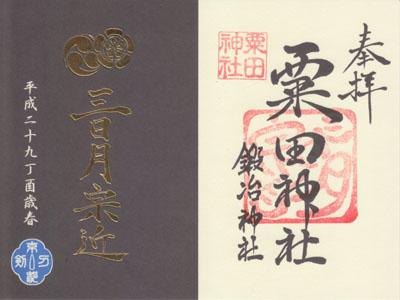 奉拝
粟田神社
鍛冶神社
粟田
神社
三日月宗近
平成二十九丁酉歳春